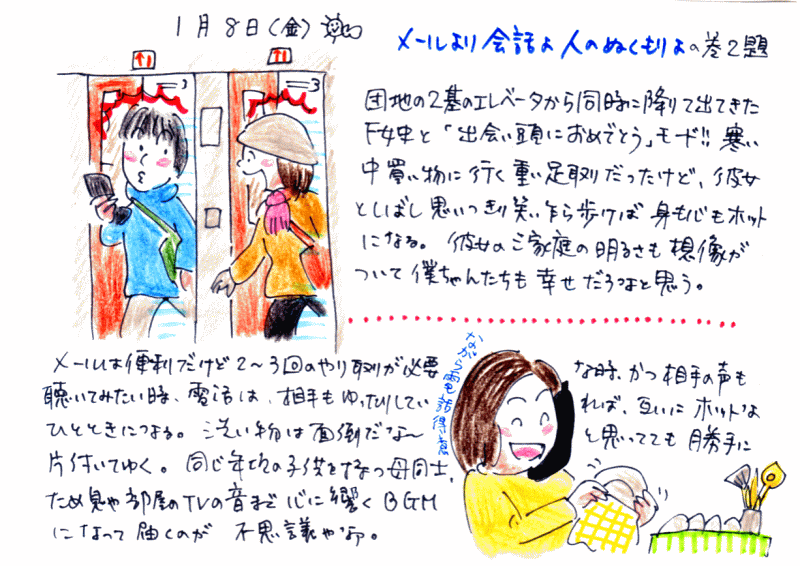 1月8日(金)
メールより会話よ 人のぬくもりよの巻2題
団地の2基のエレベータから同時に降りて出てきた
F女史と「出会い頭におめでとう」モード!! 寒い
中買い物に行く重い足取りだったけど、彼女
としばし思いっきり笑い乍ら歩けば身も心もホット
になる。彼女のご家庭の明るさも想像が
ついて僕ちゃんたちも幸せだろなと思う。
メールは便利だけど2〜3回のやり取りが必要
な時、かつ相手の声も
聴いてみたい時、電話は、相手もゆったりしてい
れば、互いにホットな
ひとときになる。洗い物は面倒だな〜
と思ってても勝手に
片付いてゆく。同じ年頃の子供をもつ母同士、
ため息や部屋のTVの音まで心に響くBGM
になって届くのが 不思議やなあ。
ながら電話得意